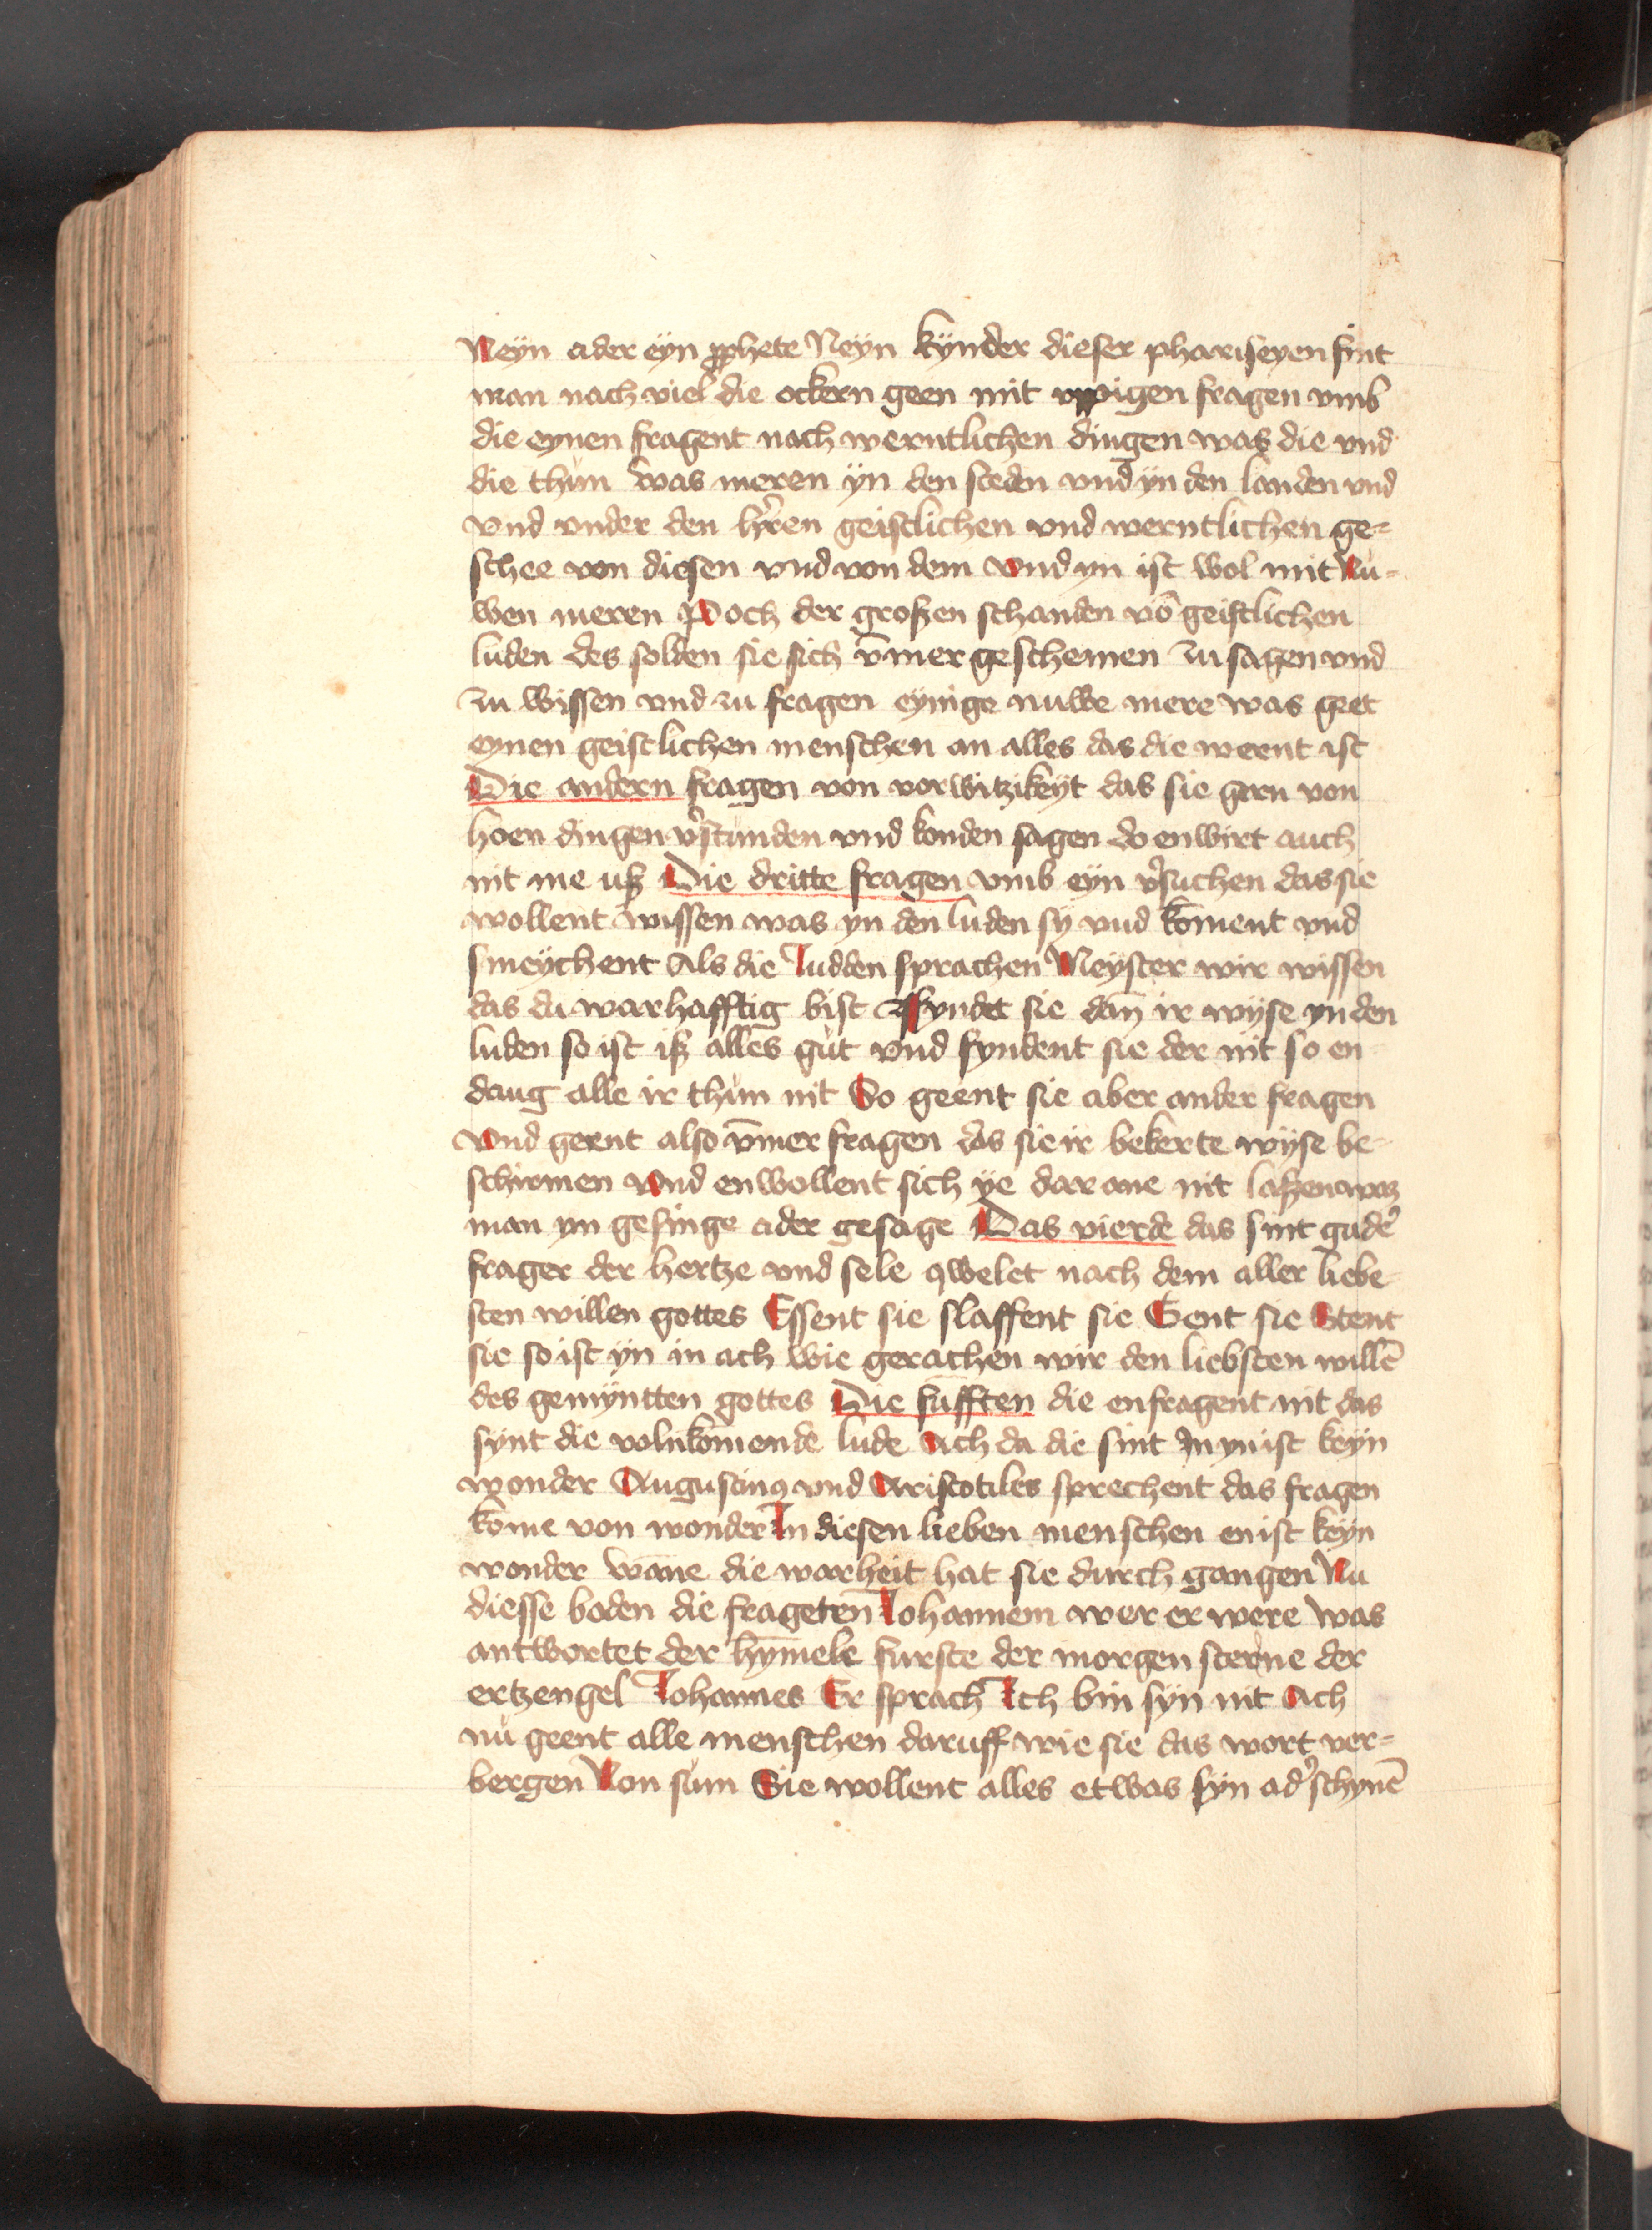 Neyn ader eyn prophete Neyn kynder dieser phariseyen sint
man nach viel die ockern geen mit vppigen fragen vmb
die eynen fragent nach werntlichen dingen was die vnd
die thůn was meren yn den steden vnd yn den landen vnd
vnd vnder den h'ren geistlichen vnd werntlichen ge-
schee von diesen vnd von dem vnd yn ist wol mit Nu-
wen meren Poch der großen schanden vō geistlichen
luden des solden sie sich v̄mer geschemen zu sagen vnd
zu wissen vnd zu fragen eynige nuwe mere was geet
eynen geistlichen menschen an alles das die wernt ist
Die andern fragen von vorwitzikeyt das sie gern von
hoen dingen v'stunden vnd konden sagen do enwirt auch
nit me uß Die dritte fragen vmb eyn v'suchen das sie
wollent wissen was yn den luden sy vnd kōment vnd
smeychent Als die Judden sprachen Meyster wir wissen
das du warhafftig bist Fyndet sie dañ ir wyse yn den
luden so ist iß alles gůt vnd fyndent sie der nit so en
daug alle ir thůn nit So geent sie aber ander fragen
Vnd gernt also v̄mer fragen das sie ir bekerte wyse be-
schirmen Vnd enwollent sich ye dar ane nit laßen waz
man yn gesinge ader gesage Das vierde das sint gude'
frager der hertze vnd sele qwelet nach dem aller liebe
sten willen gottes Essent sie slaffent sie Gent sie Stent
sie so ist yn in ach wie gerachen wir den liebsten willē
des gemyntten gottes Die fūfften die enfragent nit das
synt die volnkōmende lude Ach da die sint In yn ist keyn
wonder Augustinꝯ vnd Aristotiles sprechent das fragen
kōme von wonder In diesen lieben menschen enist keyn
wonder wāne die warheit hat sie durch gangen Nu
diesse boden die frageten Johannem wer er were Was
antwortet der hȳmele furste der morgen sterne der
ertzengel Johannes Er sprach Ich bin syn nit Ach
nů geent alle menschen daruff wie sie das wort ver-
bergen Non sum Sie wollent alles etwas syn ad' schynē